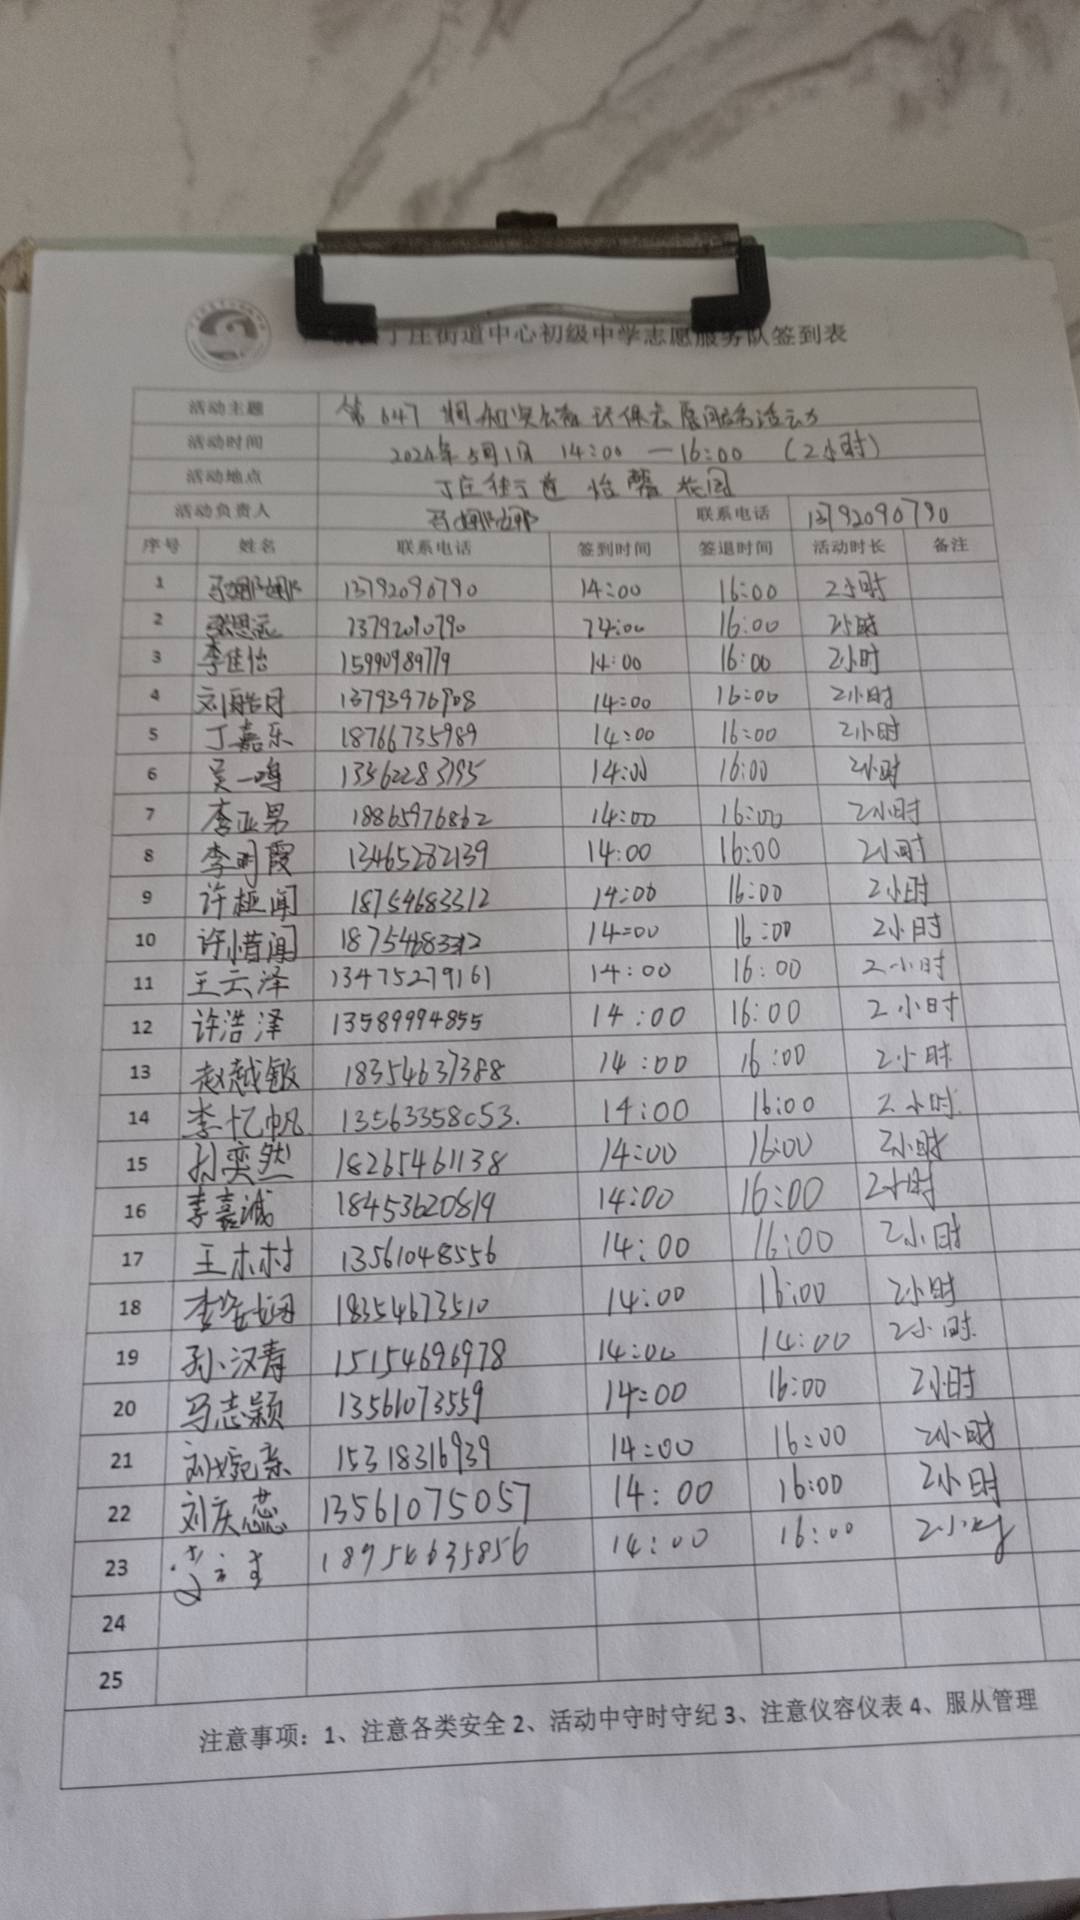 丁庄街道中心初级中学志愿服务队签到表
活动主题 第647期 环保志愿服务活动
活动时间 2024年5月1日 14:00—16:00 (2小时)
活动地点 丁庄街道 怡馨花园
活动负责人 马娜娜 联系电话 13792090790
序号 姓名 联系电话 签到时间 签退时间 活动时长 备注
1 马娜娜 13792090790 14:00 16:00 2小时
2 张思远 13792090790 14:00 16:00 2小时
3 李佳怡 15990989779 14:00 16:00 2小时
4 刘皓月 13793976908 14:00 16:00 2小时
5 丁嘉乐 18766735989 14:00 16:00 2小时
6 吴一鸣 13562283795 14:00 16:00 2小时
7 李亚男 18865976862 14:00 16:00 2小时
8 李明霞 13465282139 14:00 16:00 2小时
9 许桠闻 18754683312 14:00 16:00 2小时
10 许惜闻 18754683312 14:00 16:00 2小时
11 王云泽 13475279161 14:00 16:00 2小时
12 许浩泽 13589994855 14:00 16:00 2小时
13 赵越敏 18354637388 14:00 16:00 2小时
14 李忆帆 13563358053. 14:00 16:00 2小时.
15 孙奕然 18265461138 14:00 16:00 2小时
16 李嘉诚 18453620819 14:00 16:00 2小时
17 王木村 13561048556 14:00 16:00 2小时
18 李 18354673510 14:00 16:00 2小时
19 孙汉青 15154696978 14:00 14:00 2小时.
20 马志颖 13561073559 14:00 16:00 2小时
21 刘婉 15318316939 14:00 16:00 2小时
22 刘庆蕊 13561075057 14:00 16:00 2小时
23 18954635856 14:00 16:00 2小时
24
25
注意事项：1、注意各类安全 2、活动中守时守纪 3、注意仪容仪表 4、服从管理